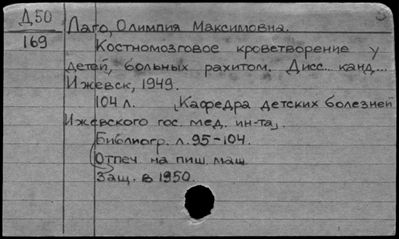 Д50
169
Лаго, Олимпия Максимовна.
Костномозговое кроветворение у
детей, больных рахитом. Дисс... канд...
Ижевск, 1949.
104 л. (Кафедра детских болезней
Ижевского гос. мед. ин-та).
Библиогр. л. 95-104.
Отпеч. на пиш. маш
Защ. в 1950.